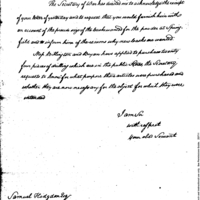 The Secretary of War has desired me to acknowledge the receipt
of your letter of yesterday and to request that you would furnish him with
an account of the present stage of the books and for the
field and to inform him of the reasons why new books are wanted
Mess. and Bryan have applied to purchase twenty
five pieces of which are on the public the Secretary
requests to know for what purpose these articles were purchased and
whether they are now necessary for the object for which they were
intended
I am Sir
with respect
your obed Servant
Samuel Hodgdon Esq